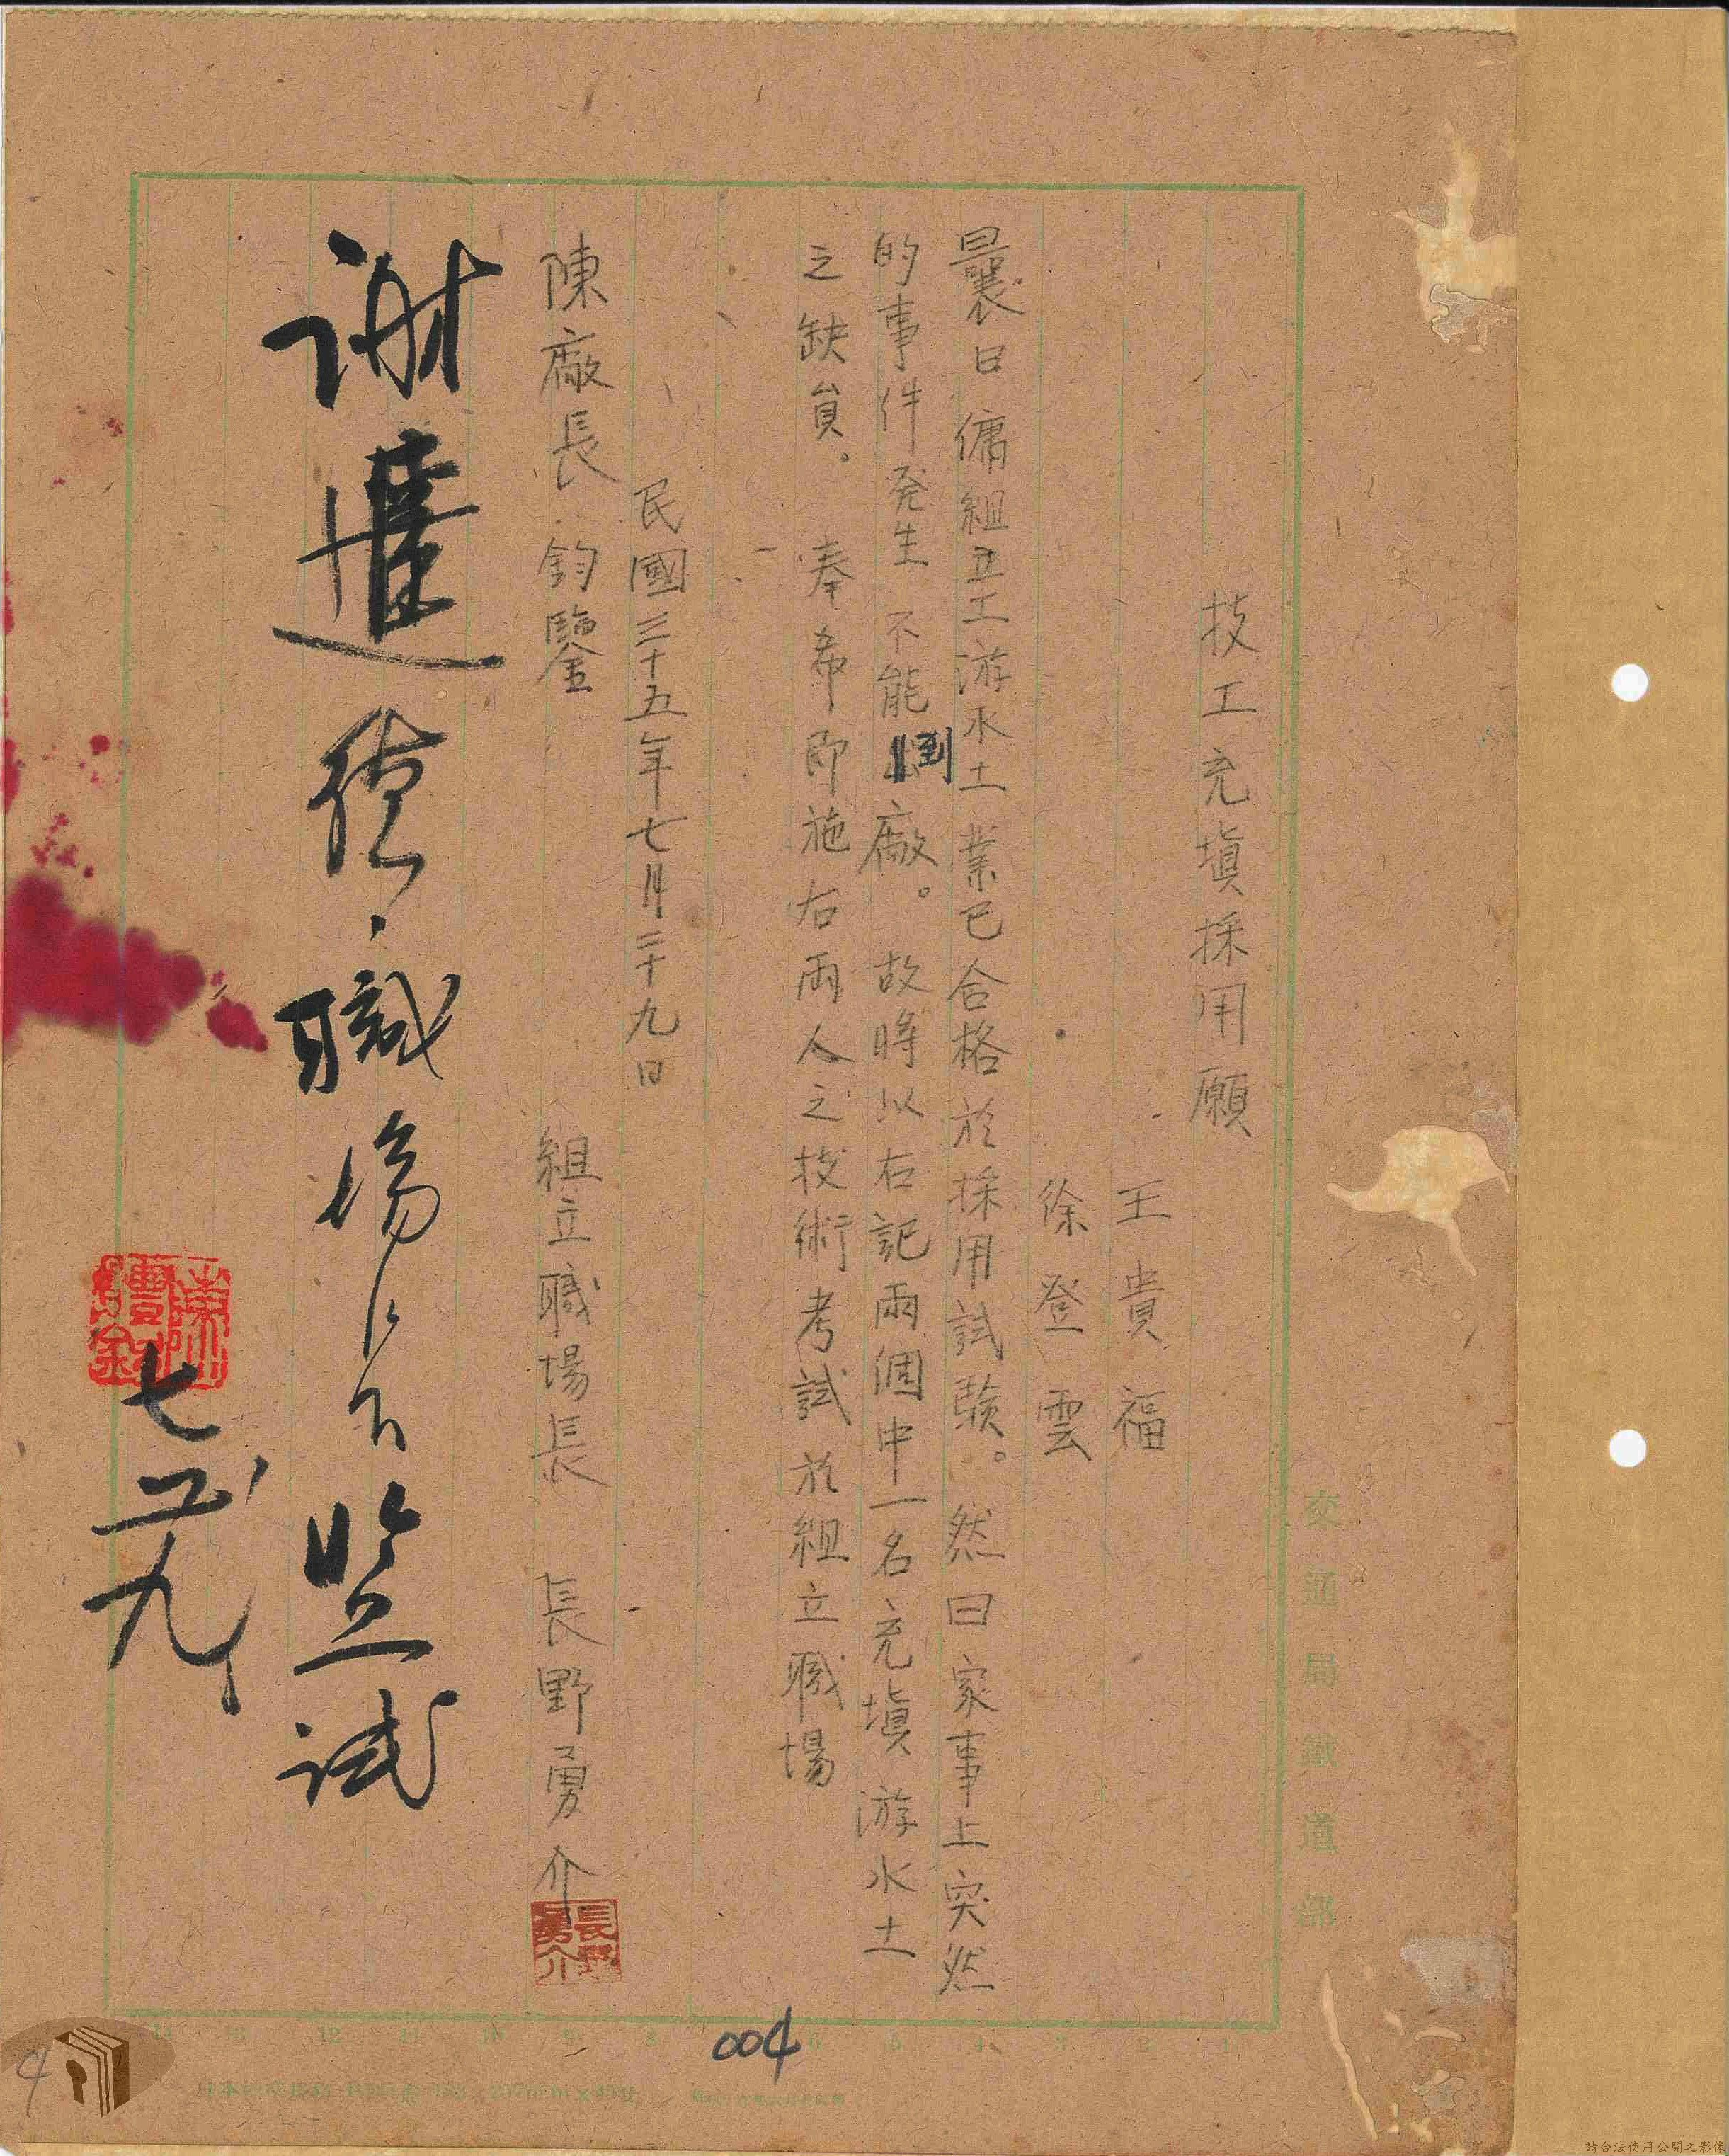 技工充塡採用願
王貴福
徐登雲
曩日傭組立工游水土業已合格於採用試驗。然曰家事上突然
的事件発生不能到廠。故時以右記兩個中一名充塡游水土
之缺員。奉希即施右兩人之技術考試於組立職場
民國三十五年七月二十九日
組立職場長 長野勇介
長野勇介
陳廠長鈞鑒
職場
監試
七
九
交通局鐵道部
1 2 3 4 5 6 8 9 10 11 12 13 14
004
4
請合法使用公開之影像